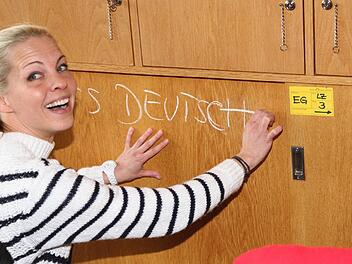 S DEUTSCH
EG LZ
3